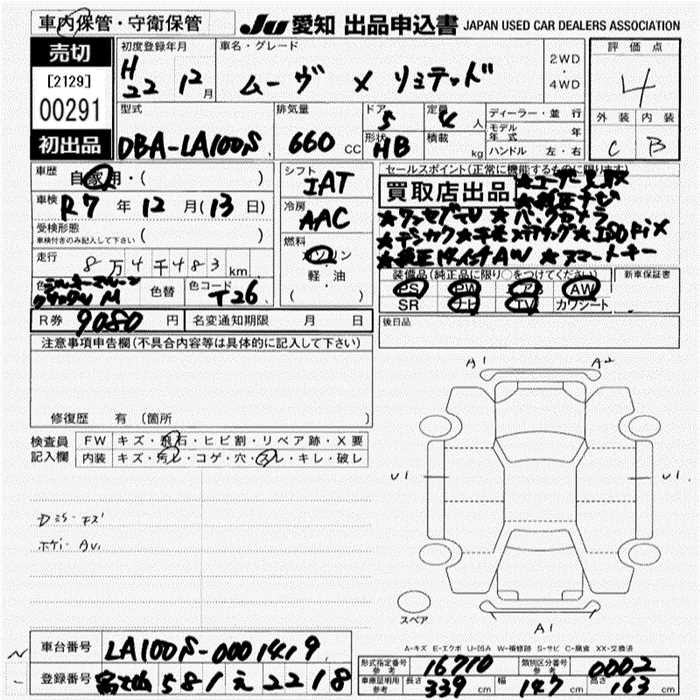 車内保管・守衛保管
JU 愛知 出品申込書 JAPAN USED CAR DEALERS ASSOCIATION
売切
[2129]
00291
初出品
初度登録年月 車名・グレード 2WD・4WD 評価点
H22 12月 ムーヴ X リミテッド 4
型式 排気量 ドア 定員 ディーラー・並行 外装 内装
DBA-LA100S 660 CC 5 4人 モデル年式 年 C B
形状 積載 ハンドル 左・右
HB kg
車歴 自家用・( )
シフト IAT
セールスポイント(正常に機能するものに限ります)
買取店出品
車検 R7年 12月(13日)
冷房 AAC
★ワンセグ ★バックカメラ
受検形態 ( )
車検付きのみ記入して下さい
燃料 ガソリン
★ISOFIX
軽・油
( )
★純正 AW ★スマートキー
走行 8万4千483km
装備品(純正品に限り○をつけてください) 新車保証書
色 色替 色コード T26
PS PW エアB AW
SR ナビ TV カワシート
R券 9080円 名変通知期限 月 日
後日品
注意事項申告欄(不具合内容等は具体的に記入して下さい)
修復歴 有 (箇所 )
検査員記入欄 FW キズ・飛石・ヒビ割・リペア跡・X要
内装 キズ・汚レ・コゲ・穴・スレ・キレ・破レ
A1 A2
U1 U1
スペア
A1
A-キズ E-エクボ U-凹み W-補修跡 S-サビ C-腐食 XX-交換済
車台番号 LA100S-0001419
登録番号 富士山 581 え 2218
形式指定番号 参考 16710 類別区分番号 参考 0002
車庫証明用 参考 長さ 339cm 幅 147cm 高さ 163cm